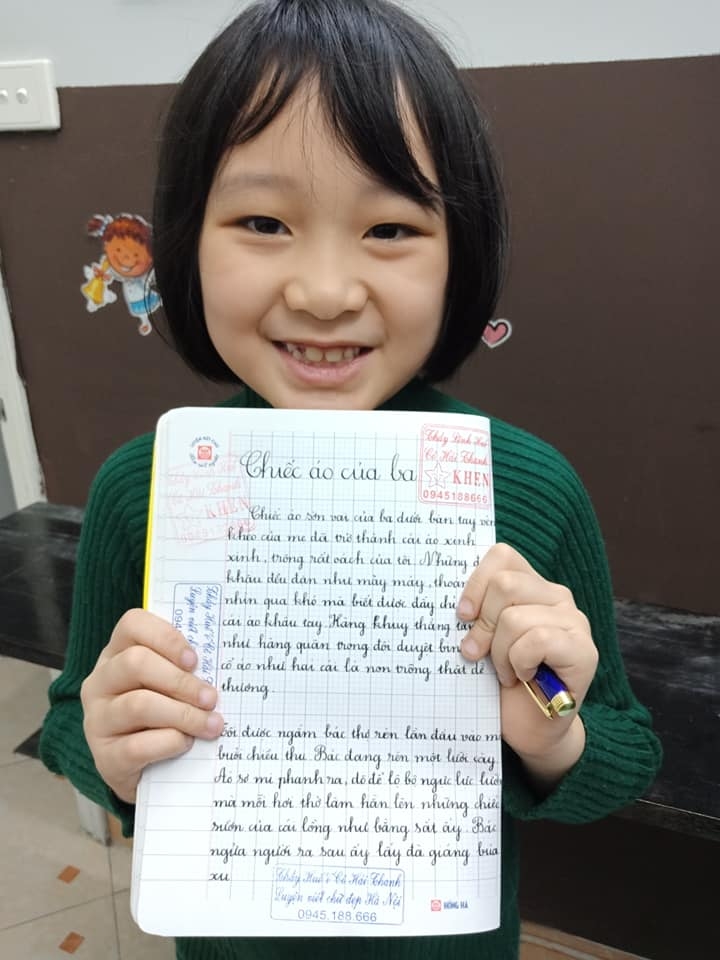 Chiếc áo của ba
Thầy Linh Huế
Cô Hải Thanh
KHEN
0945188666
Chiếc áo sờn vai của ba dưới bàn tay vén
khéo của mẹ đã trở thành cái áo xinh
xinh, trông rất oách của tôi. Những đ
khâu đều đặn như máy may, thoán
nhìn qua khó mà biết được đấy chi
cái áo khâu tay. Hàng khuy thẳng tắp
như hàng quân trong đội duyệt binh
cổ áo như hai cái lá non trông thật dễ
thương.
Tôi được ngắm bác thợ rèn lần đầu vào m
buổi chiều thu. Bác đang rèn một lưỡi cày.
Áo sơ mi phanh ra, đó để lộ bộ ngực lực lưỡn
mà mỗi hơi thở làm hằn lên những chiếc
sườn của cái lồng như bằng sắt ấy. Bác
ngửa người ra sau ấy lấy đà giáng búa
xu
Thầy Huế & Cô Hải Thanh
Luyện viết chữ đẹp Hà Nội
0945.188.666
HỒNG HÀ